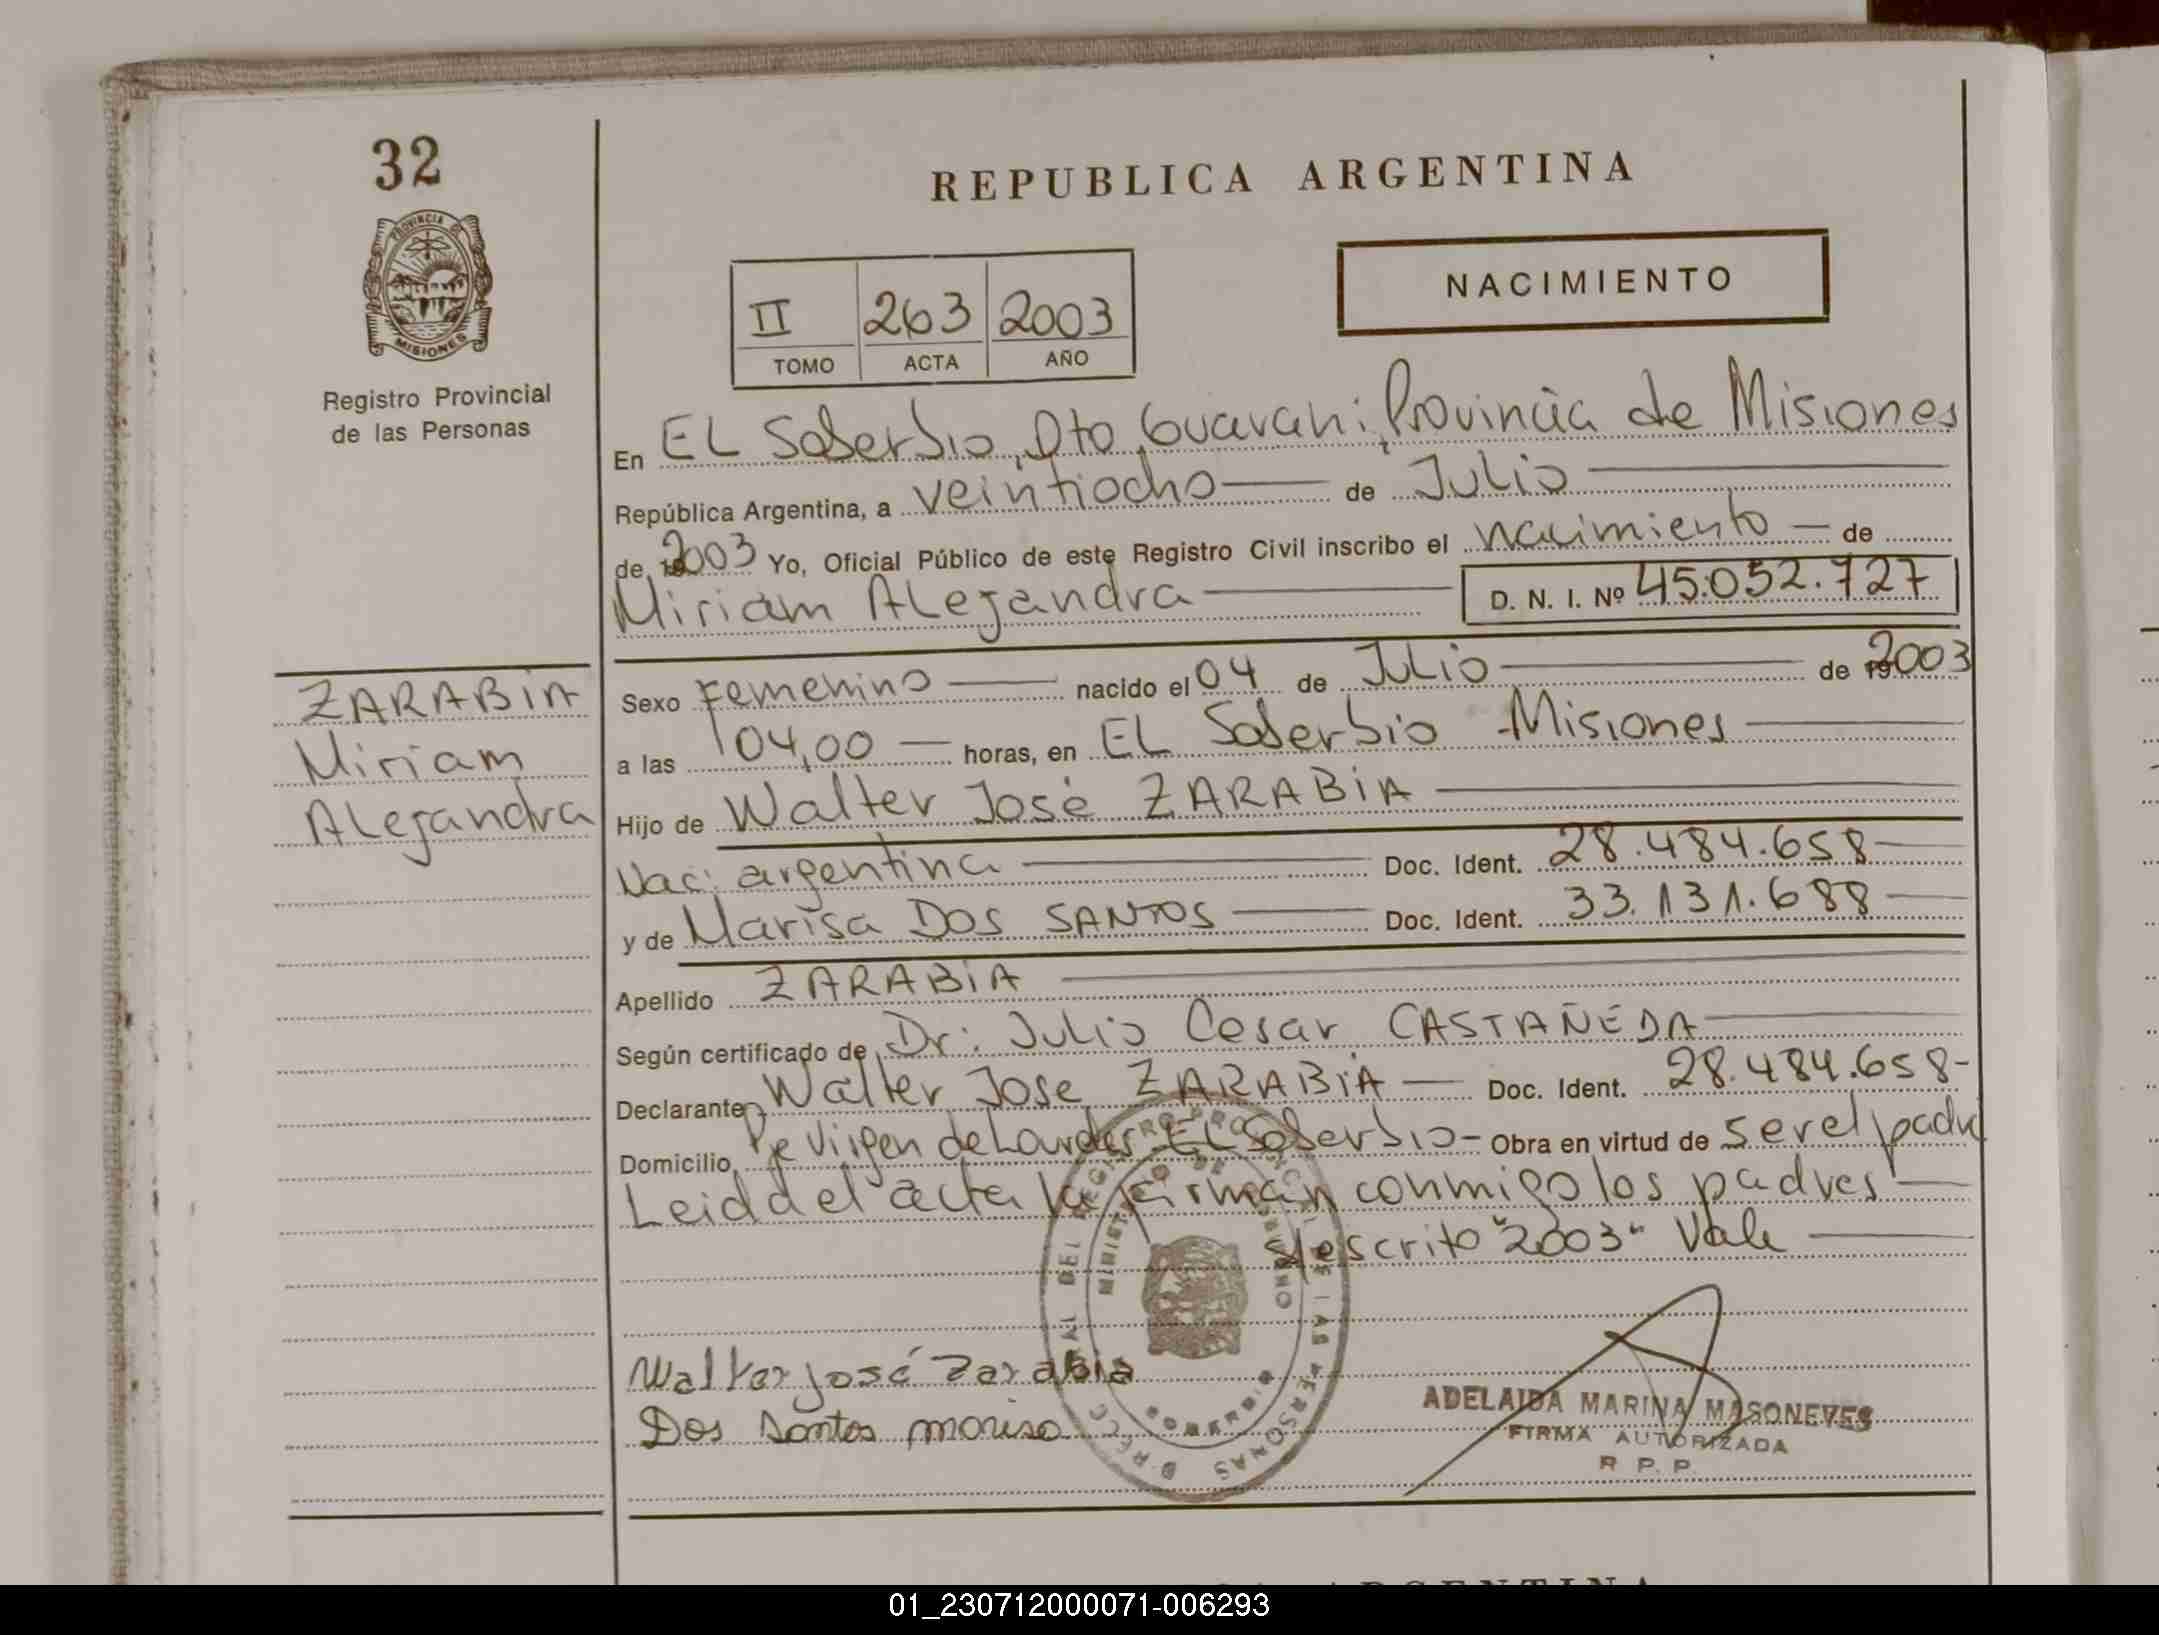 32
PROVINCIA DE
MISIONES
Registro Provincial
de las Personas
REPUBLICA ARGENTINA
NACIMIENTO
II 263 2003
TOMO ACTA AÑO
En EL Soberbio, Dto Guarani, Provincia de Misiones
República Argentina, a veintiocho de Julio
de 2003 Yo, Oficial Público de este Registro Civil inscribo el nacimiento de
Miriam Alejandra D. N. I. Nº 45.052.727
ZARABIA
Miriam
Alejandra
Sexo Femenino nacido el 04 de Julio de 2003
a las 04,00 horas, en EL Soberbio - Misiones
Hijo de Walter José ZARABIA
Nac: argentina Doc. Ident. 28.484.658
y de Marisa DOS SANTOS Doc. Ident. 33.131.688
Apellido ZARABIA
Según certificado de Dr: Julio Cesar CASTAÑEDA
Declarante Walter Jose ZARABIA Doc. Ident. 28.484.658-
Domicilio Virgen de Lourdes EL Soberbio - Obra en virtud de ser el padre
Leida el acta la firman conmigo los padres
s/escrito "2003" Vale
Walter José Zarabia
Dos Santos marisa
ADELAIDA MARINA MASONEVES
FIRMA AUTORIZADA
R P. P.
ARGENTINA
01_230712000071-006293